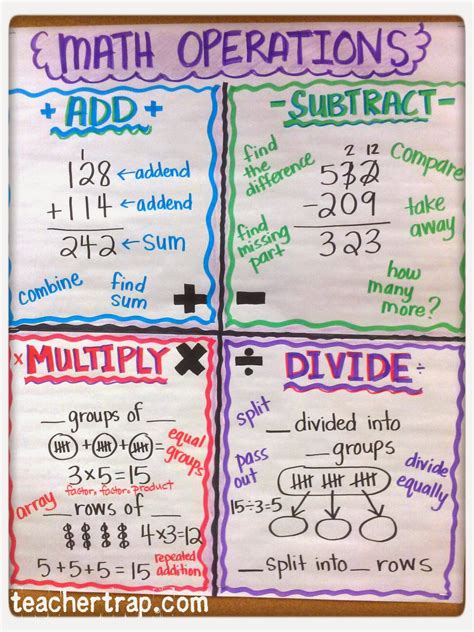 MATH OPERATIONS
+ ADD +
1
128 ← addend
+114 ← addend
242 ← Sum
combine
find sum
+
- SUBTRACT -
find the difference
2 12
532
-209
323
Compare
take away
find missing part
how many more?
-
× MULTIPLY ×
__ groups of __
equal groups
+ + =
3×5=15
factor × factor = product
array
__ rows of __
4×3=12
5+5+5=15
repeated addition
÷ DIVIDE ÷
split
__ divided into
__ groups
pass out
divide equally
15÷3=5
__ split into __ rows
teachertrap.com